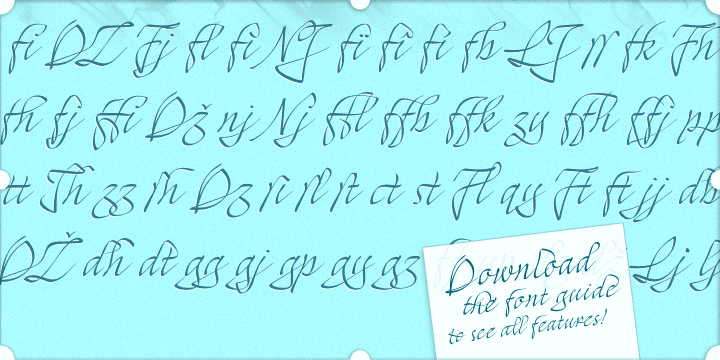 fi DZ Fj fl fi NJ fï fî fì fb LJ rr fk Fh
fh fj ffi Dž nj Nj ffl ffb ffk zy ffh ffj pp
tt Th zz fh Dz ri rl rt ct st Fl qy Ft ft jj db
DŽ dh dt gg gj gp gy gz
Lj lj
Download
the font guide
to see all features!